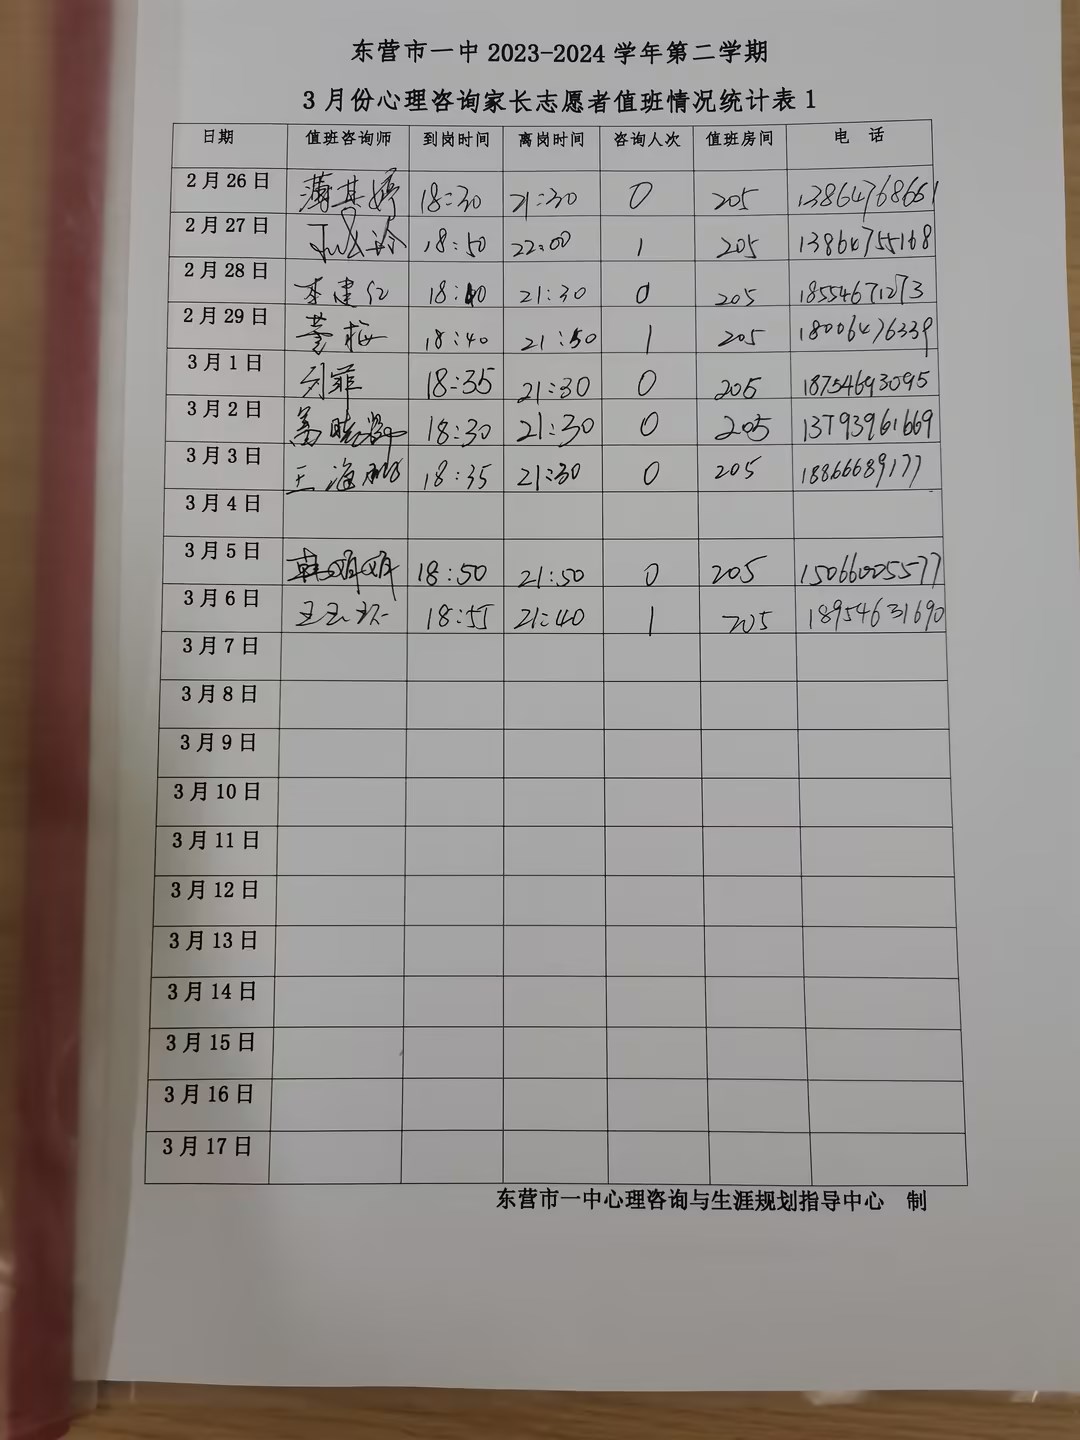 东营市一中 2023-2024 学年第二学期
3 月份心理咨询家长志愿者值班情况统计表 1
日期 值班咨询师 到岗时间 离岗时间 咨询人次 值班房间 电 话
2 月 26 日 蒲其婷 18:30 21:30 0 205 13864768661
2 月 27 日 18:50 22:00 1 205 13864755168
2 月 28 日 李建红 18:40 21:30 0 205 18554671273
2 月 29 日 18:40 21:50 1 205 18006476339
3 月 1 日 刘菲 18:35 21:30 0 205 18754693095
3 月 2 日 18:30 21:30 0 205 13793961669
3 月 3 日 王海 18:35 21:30 0 205 18866689177
3 月 4 日
3 月 5 日 韩娟娟 18:50 21:50 0 205 15066005577
3 月 6 日 18:55 21:40 1 205 18954631690
3 月 7 日
3 月 8 日
3 月 9 日
3 月 10 日
3 月 11 日
3 月 12 日
3 月 13 日
3 月 14 日
3 月 15 日
3 月 16 日
3 月 17 日
东营市一中心理咨询与生涯规划指导中心 制